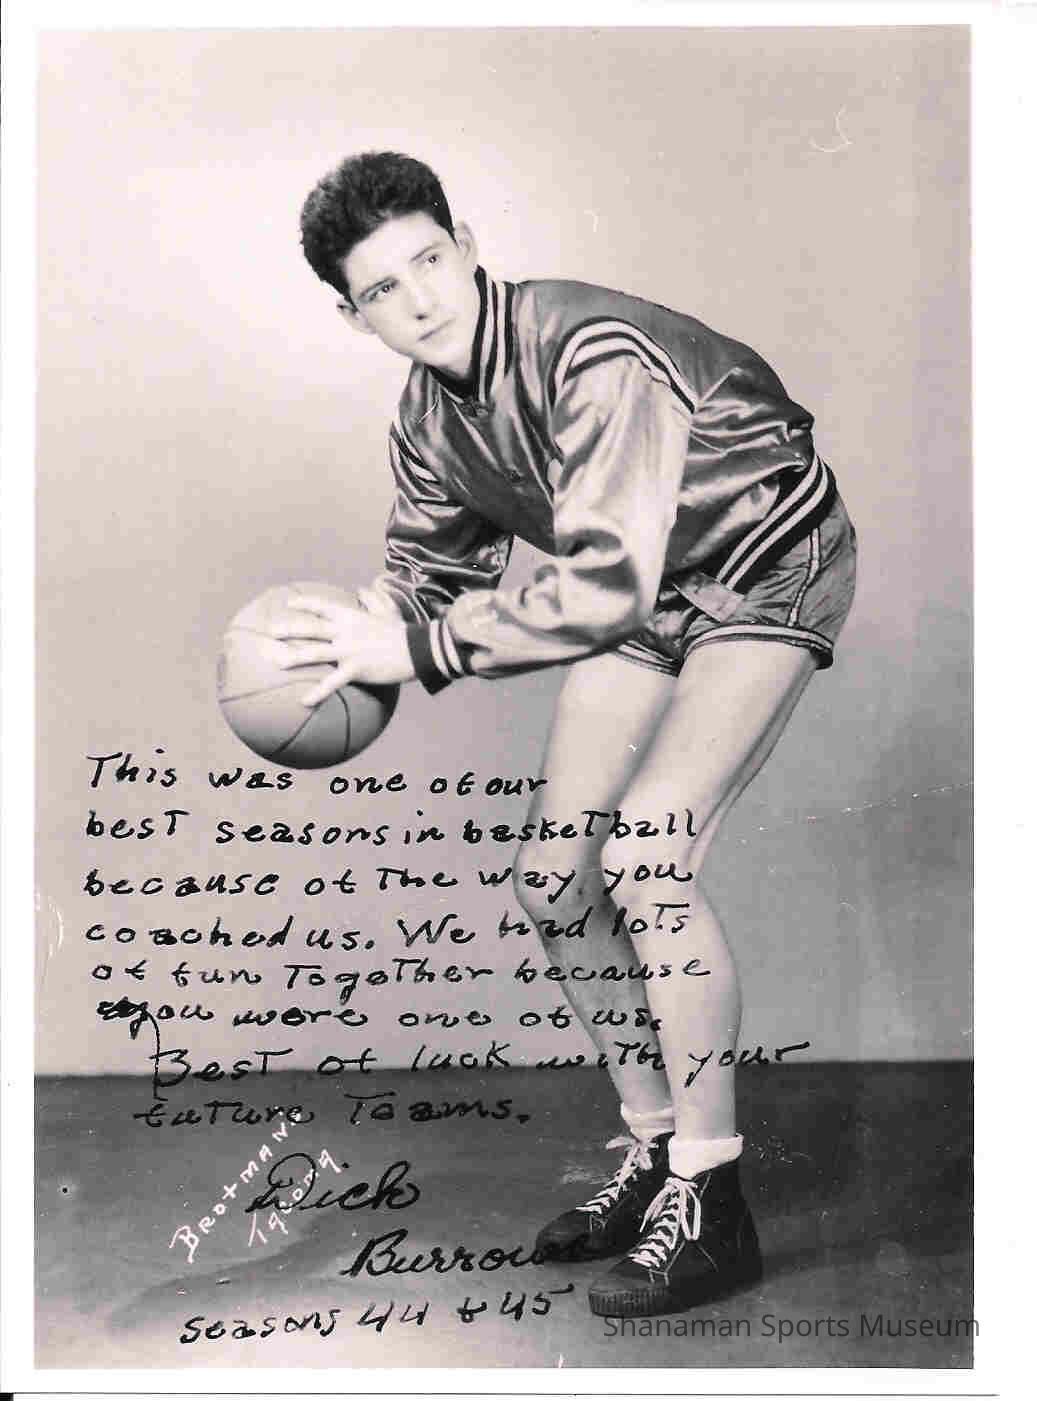 This was one of our
best seasons in basketball
because of the way you
coached us. We had lots
of fun together because
you were one of us.
Best of luck with your
future teams.
Brotman's
Tacoma
Dick
Burrows
seasons 44 & 45
Shanaman Sports Museum